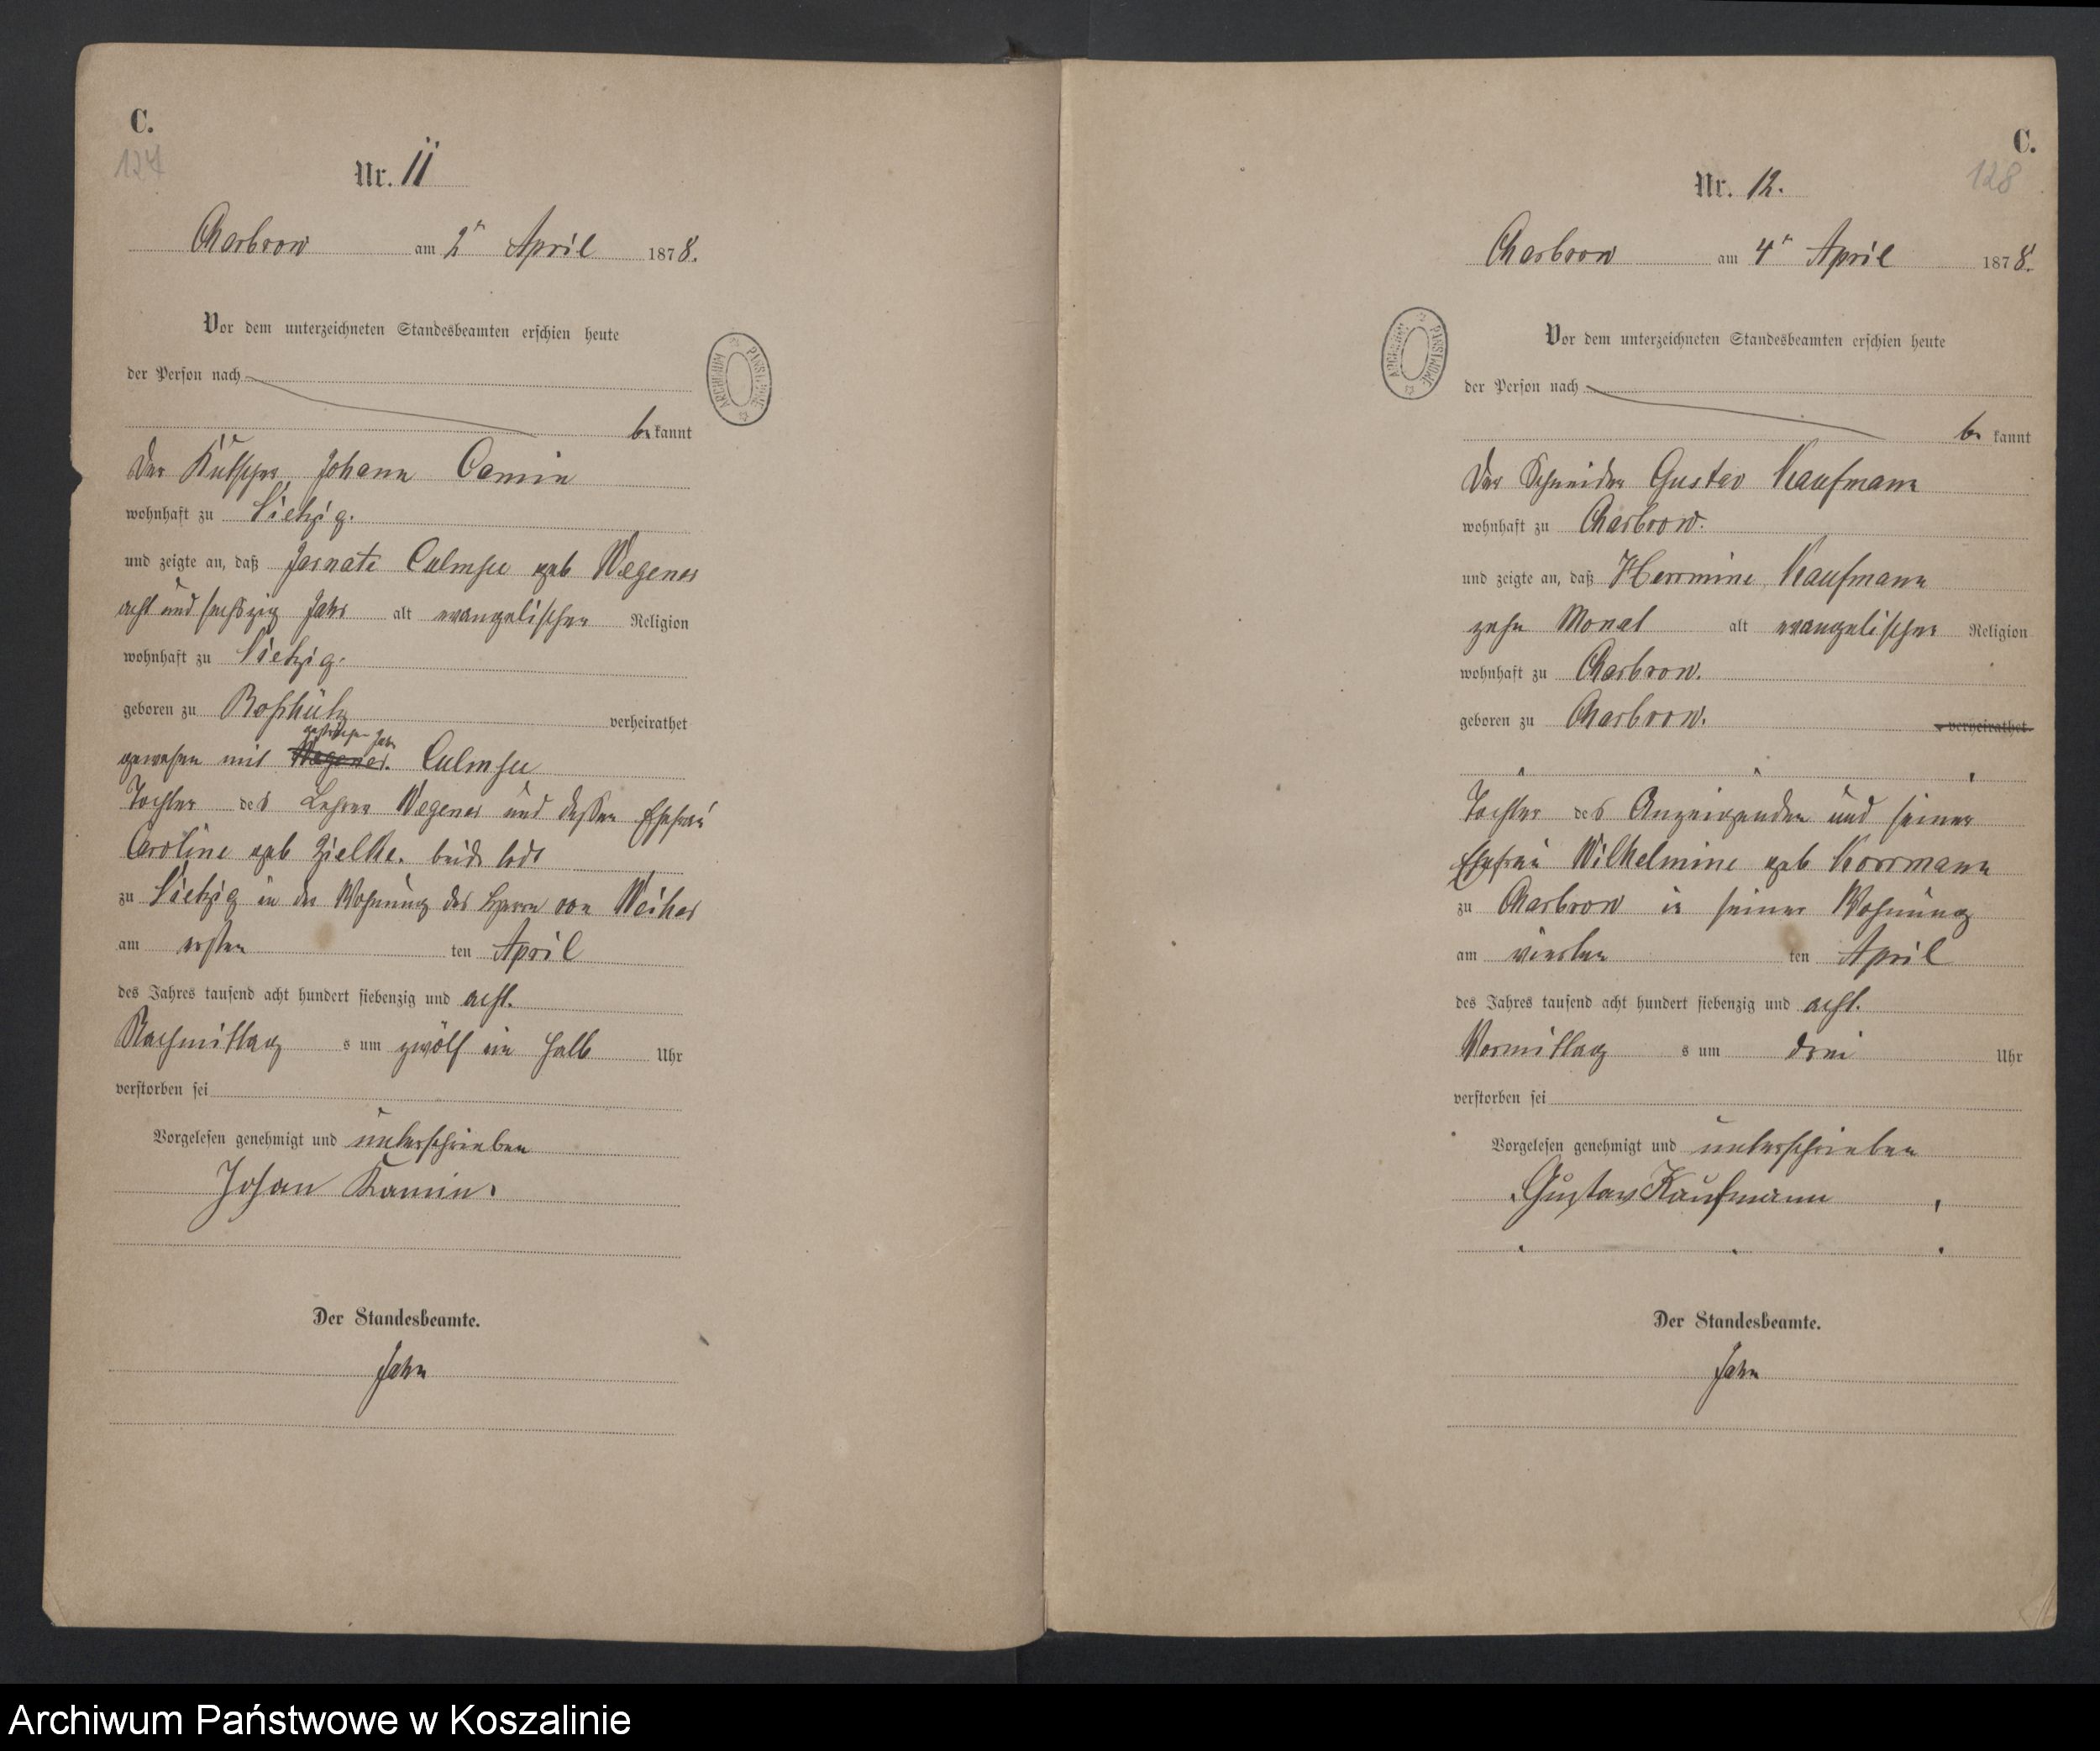 C.
127
Nr. 11
Charbrow am 2n April 1878.
Vor dem unterzeichneten Standesbeamten erschien heute
der Person nach
be kannt
ARCHIWUM PAŃSTWOWE
Der Kutscher Johann Camin
wohnhaft zu Vietzig.
und zeigte an, daß Culmsee geb Wegener
acht und sechszig Jahr alt evangelischer Religion
wohnhaft zu Vietzig.
geboren zu verheirathet
gewesen mit Wegener. Culmsee
Tochter des Lehrer Wegener und dessen Ehefrau
Caroline geb Zielke. beide todt
zu Vietzig in der Wohnung des Herrn von Weiher
am ersten ten April
des Jahres tausend acht hundert siebenzig und acht.
Nachmittag s um zwölf ein halb Uhr
verstorben sei
Vorgelesen genehmigt und unterschrieben
Johan Kamin.
Der Standesbeamte.
Jahn
C.
128
Nr. 12.
Charbrow am 4n April 1878.
Vor dem unterzeichneten Standesbeamten erschien heute
der Person nach
be kannt
ARCHIWUM PAŃSTWOWE
Der Schneider Gustav Kaufmann
wohnhaft zu Charbrow.
und zeigte an, daß Herrmine Kaufmann
zehn Monat alt evangelischer Religion
wohnhaft zu Charbrow.
geboren zu Charbrow. verheirathet
Tochter des Anzeigenden und seiner
Ehefrau Wilhelmine geb Korrmann
zu Charbrow in seiner Wohnung
am vierten ten April
des Jahres tausend acht hundert siebenzig und acht.
Vormittag s um drei Uhr
verstorben sei
Vorgelesen genehmigt und unterschrieben
Gustav Kaufmann
Der Standesbeamte.
Jahn
Archiwum Państwowe w Koszalinie